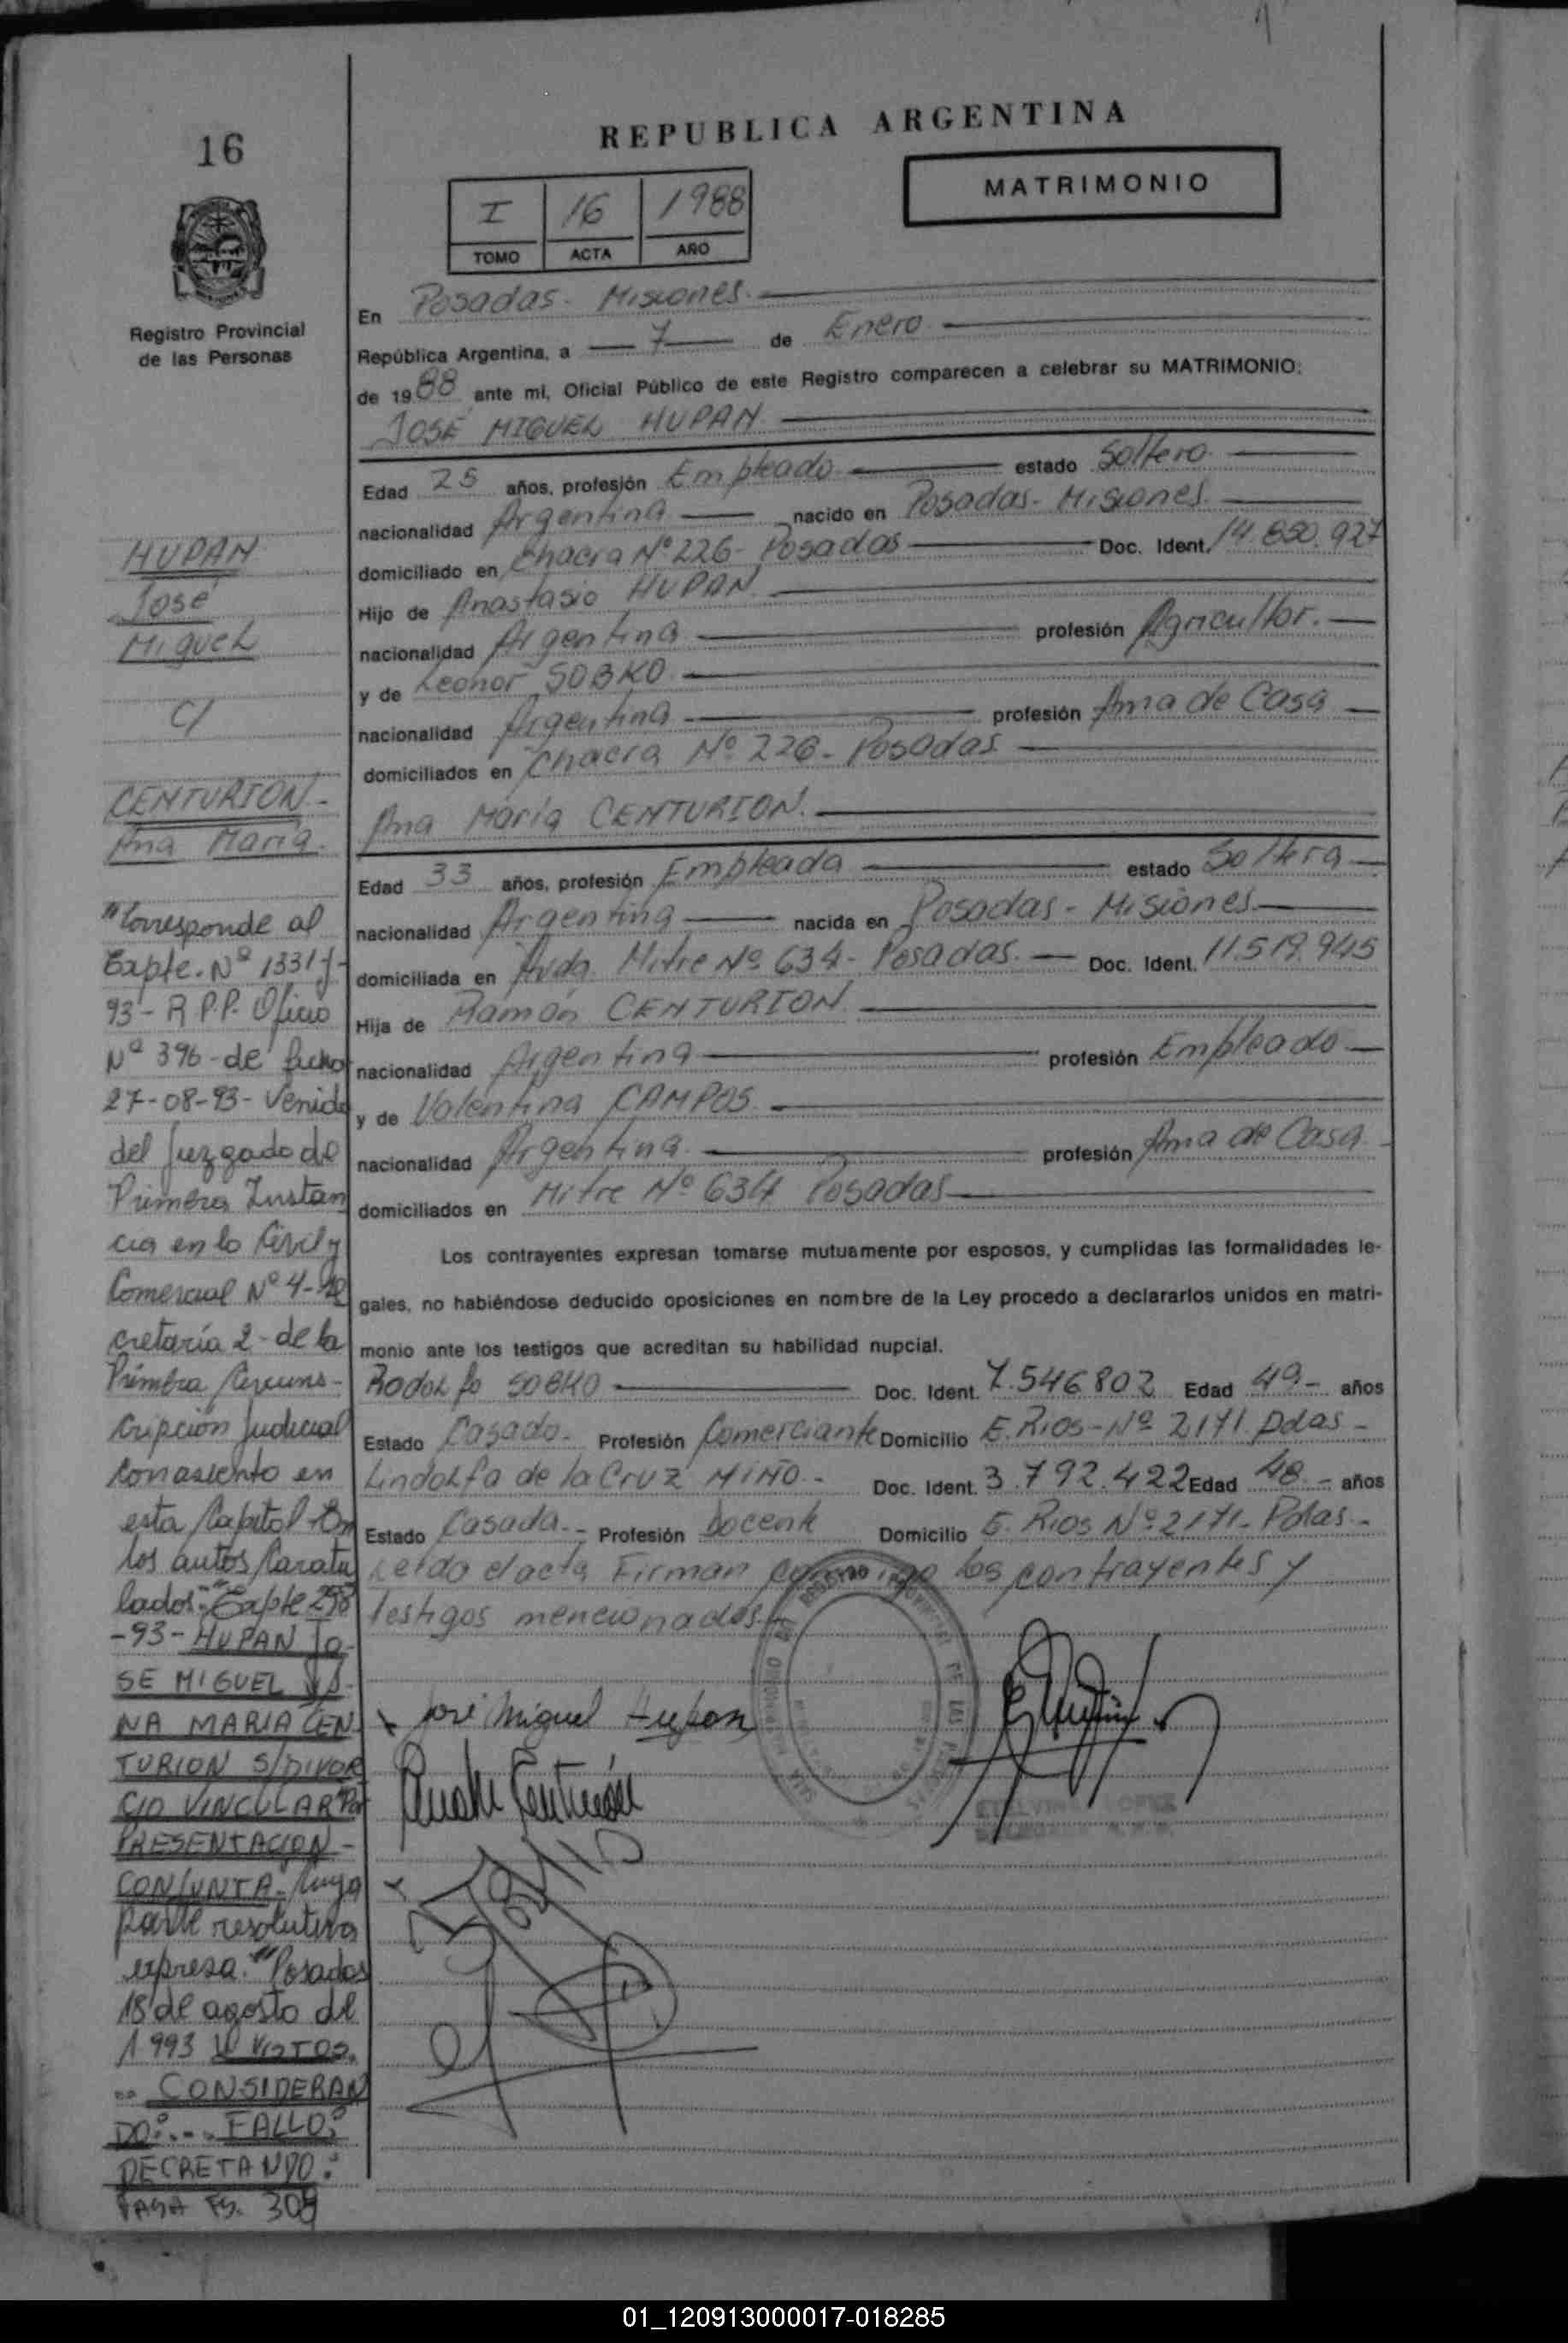 16
Registro Provincial
de las Personas
HUPAN
José
Miguel
C/
CENTURION.-
Ana María.
"Corresponde al
Expte. Nº 1331/-
93 - R.P.P. Oficio
Nº 396 - de fecha
27-08-93 - Venido
del Juzgado de
Primera Instan
cia en lo Civil y
Comercial Nº 4 - Se
cretaría 2 - de la
Primera Circuns-
cripción Judicial
con asiento en
esta Capital - En
los autos Caratu
lados: "Expte 298
-93- HUPAN JO-
SE MIGUEL Y A-
NA MARIA CEN
TURION S/DIVOR
CIO VINCULAR Por
PRESENTACION -
CONJUNTA - Cuya
parte resolutiva
expresa: "Posadas
18 de agosto de
1993 VISTOS.
.. CONSIDERAN
DO:... FALLO:
DECRETANDO:
PASA FS. 309
REPUBLICA ARGENTINA
MATRIMONIO
I 16 1988
TOMO ACTA AÑO
En Posadas - Misiones.
República Argentina, a 7 de Enero
de 1988 ante mí, Oficial Público de este Registro comparecen a celebrar su MATRIMONIO:
JOSÉ MIGUEL HUPAN
Edad 25 años, profesión Empleado estado Soltero
nacionalidad Argentina nacido en Posadas - Misiones
domiciliado en Chacra Nº 226 - Posadas Doc. Ident. 14.850.927
Hijo de Anastasio HUPAN
nacionalidad Argentina profesión Agricultor.
y de Leonor SOBKO
nacionalidad Argentina profesión Ama de Casa
domiciliados en Chacra Nº 226 - Posadas
Ana María CENTURION.
Edad 33 años, profesión Empleada estado Soltera
nacionalidad Argentina nacida en Posadas - Misiones
domiciliada en Avda. Mitre Nº 634 - Posadas. Doc. Ident. 11.519.945
Hija de Ramón CENTURION
nacionalidad Argentina profesión Empleado
y de Valentina CAMPOS
nacionalidad Argentina profesión Ama de Casa
domiciliados en Mitre Nº 634 Posadas
Los contrayentes expresan tomarse mutuamente por esposos, y cumplidas las formalidades le-
gales, no habiéndose deducido oposiciones en nombre de la Ley procedo a declararlos unidos en matri-
monio ante los testigos que acreditan su habilidad nupcial.
Rodolfo SOBKO Doc. Ident. 7.546.802 Edad 49.- años
Estado Casado.- Profesión Comerciante Domicilio E. Rios - Nº 2171. Pdas -
Lindolfa de la Cruz MIÑO.- Doc. Ident. 3.792.422 Edad 48.- años
Estado Casada.- Profesión Docente Domicilio E. Rios Nº 2171 - Pdas.-
Leído el acta Firman conmigo los contrayentes y
testigos mencionados.-
José Miguel Hupan
01_120913000017-018285